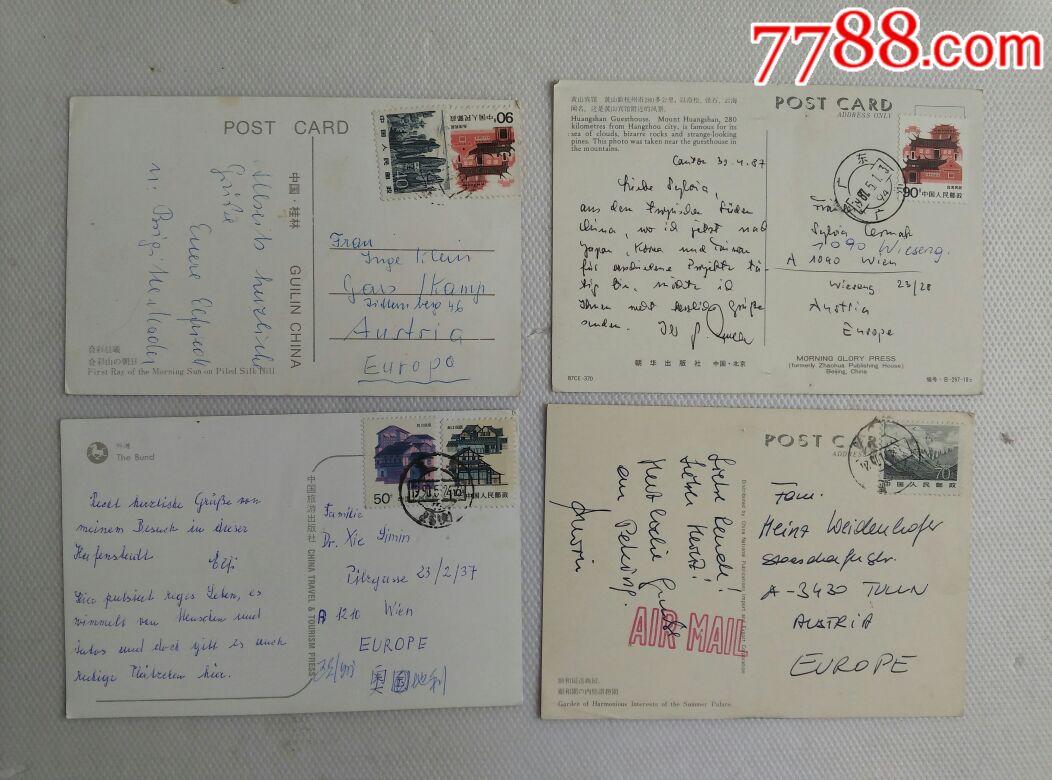 7788.com
POST CARD
中国·桂林
GUILIN CHINA
90
中国人民邮政
10
中国人民邮政
Allseits herzliche
Grüße
Eure Elfriede
u.
Frau
Inge
Gars /Kamp
46
Austria
Europa
叠彩晨曦
First Ray of the Morning Sun on Piled Silk Hill
黄山宾馆 黄山距杭州市280多公里,以奇松、怪石、云海
闻名,这是黄山宾馆附近的风景。
Huangshan Guesthouse. Mount Huangshan, 280
kilometres from Hangzhou city, is famous for its
sea of clouds, bizarre rocks and strange-looking
pines. This photo was taken near the guesthouse in
the mountains.
POST CARD
ADDRESS ONLY
90
中国人民邮政
Liebe Sylvia,
aus dem tropischen Süden
Chinas, wo ich jetzt nach
Japan, Korea und Taiwan
für verschiedene Projekte tä-
tig bin, möchte ich
Ihnen recht herzliche Grüße
senden.
Sylvia Cermak
1090 Wieseng.
A 1090 Wien
Wieseng 23/28
Austria
Europe
朝华出版社 中国·北京
MORNING GLORY PRESS
(formerly Zhaohua Publishing House)
Beijing, China
87CE-370
外滩
The Bund
50
10
中国人民邮政
Recht herzliche Grüße von
meinem Besuch in dieser
Hafenstadt
Elfi
Hier pulsiert reges Leben, es
wimmelt von Menschen und
Autos und doch gibt es auch
ruhige Plätzchen hier.
中国旅游出版社 CHINA TRAVEL & TOURISM PRESS
Familie
Dr. Xie Simin
Pilzgasse 23/2/37
A 1210 Wien
EUROPE
奥国地利
POST CARD
ADDRESS
70
中国人民邮政
Liebe
Lieber Horst!
Herzliche Grüße
aus Peking.
Distributed by China National Publications Import and Export Corporation
AIR MAIL
Fam.
Heinz Weidenhofer
A-3430 TULLN
AUSTRIA
EUROPE
颐和园谐趣园
頤和園の内諧趣園
Garden of Harmonious Interests of the Summer Palace